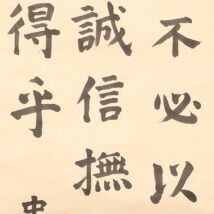 不必以
誠信撫
得乎